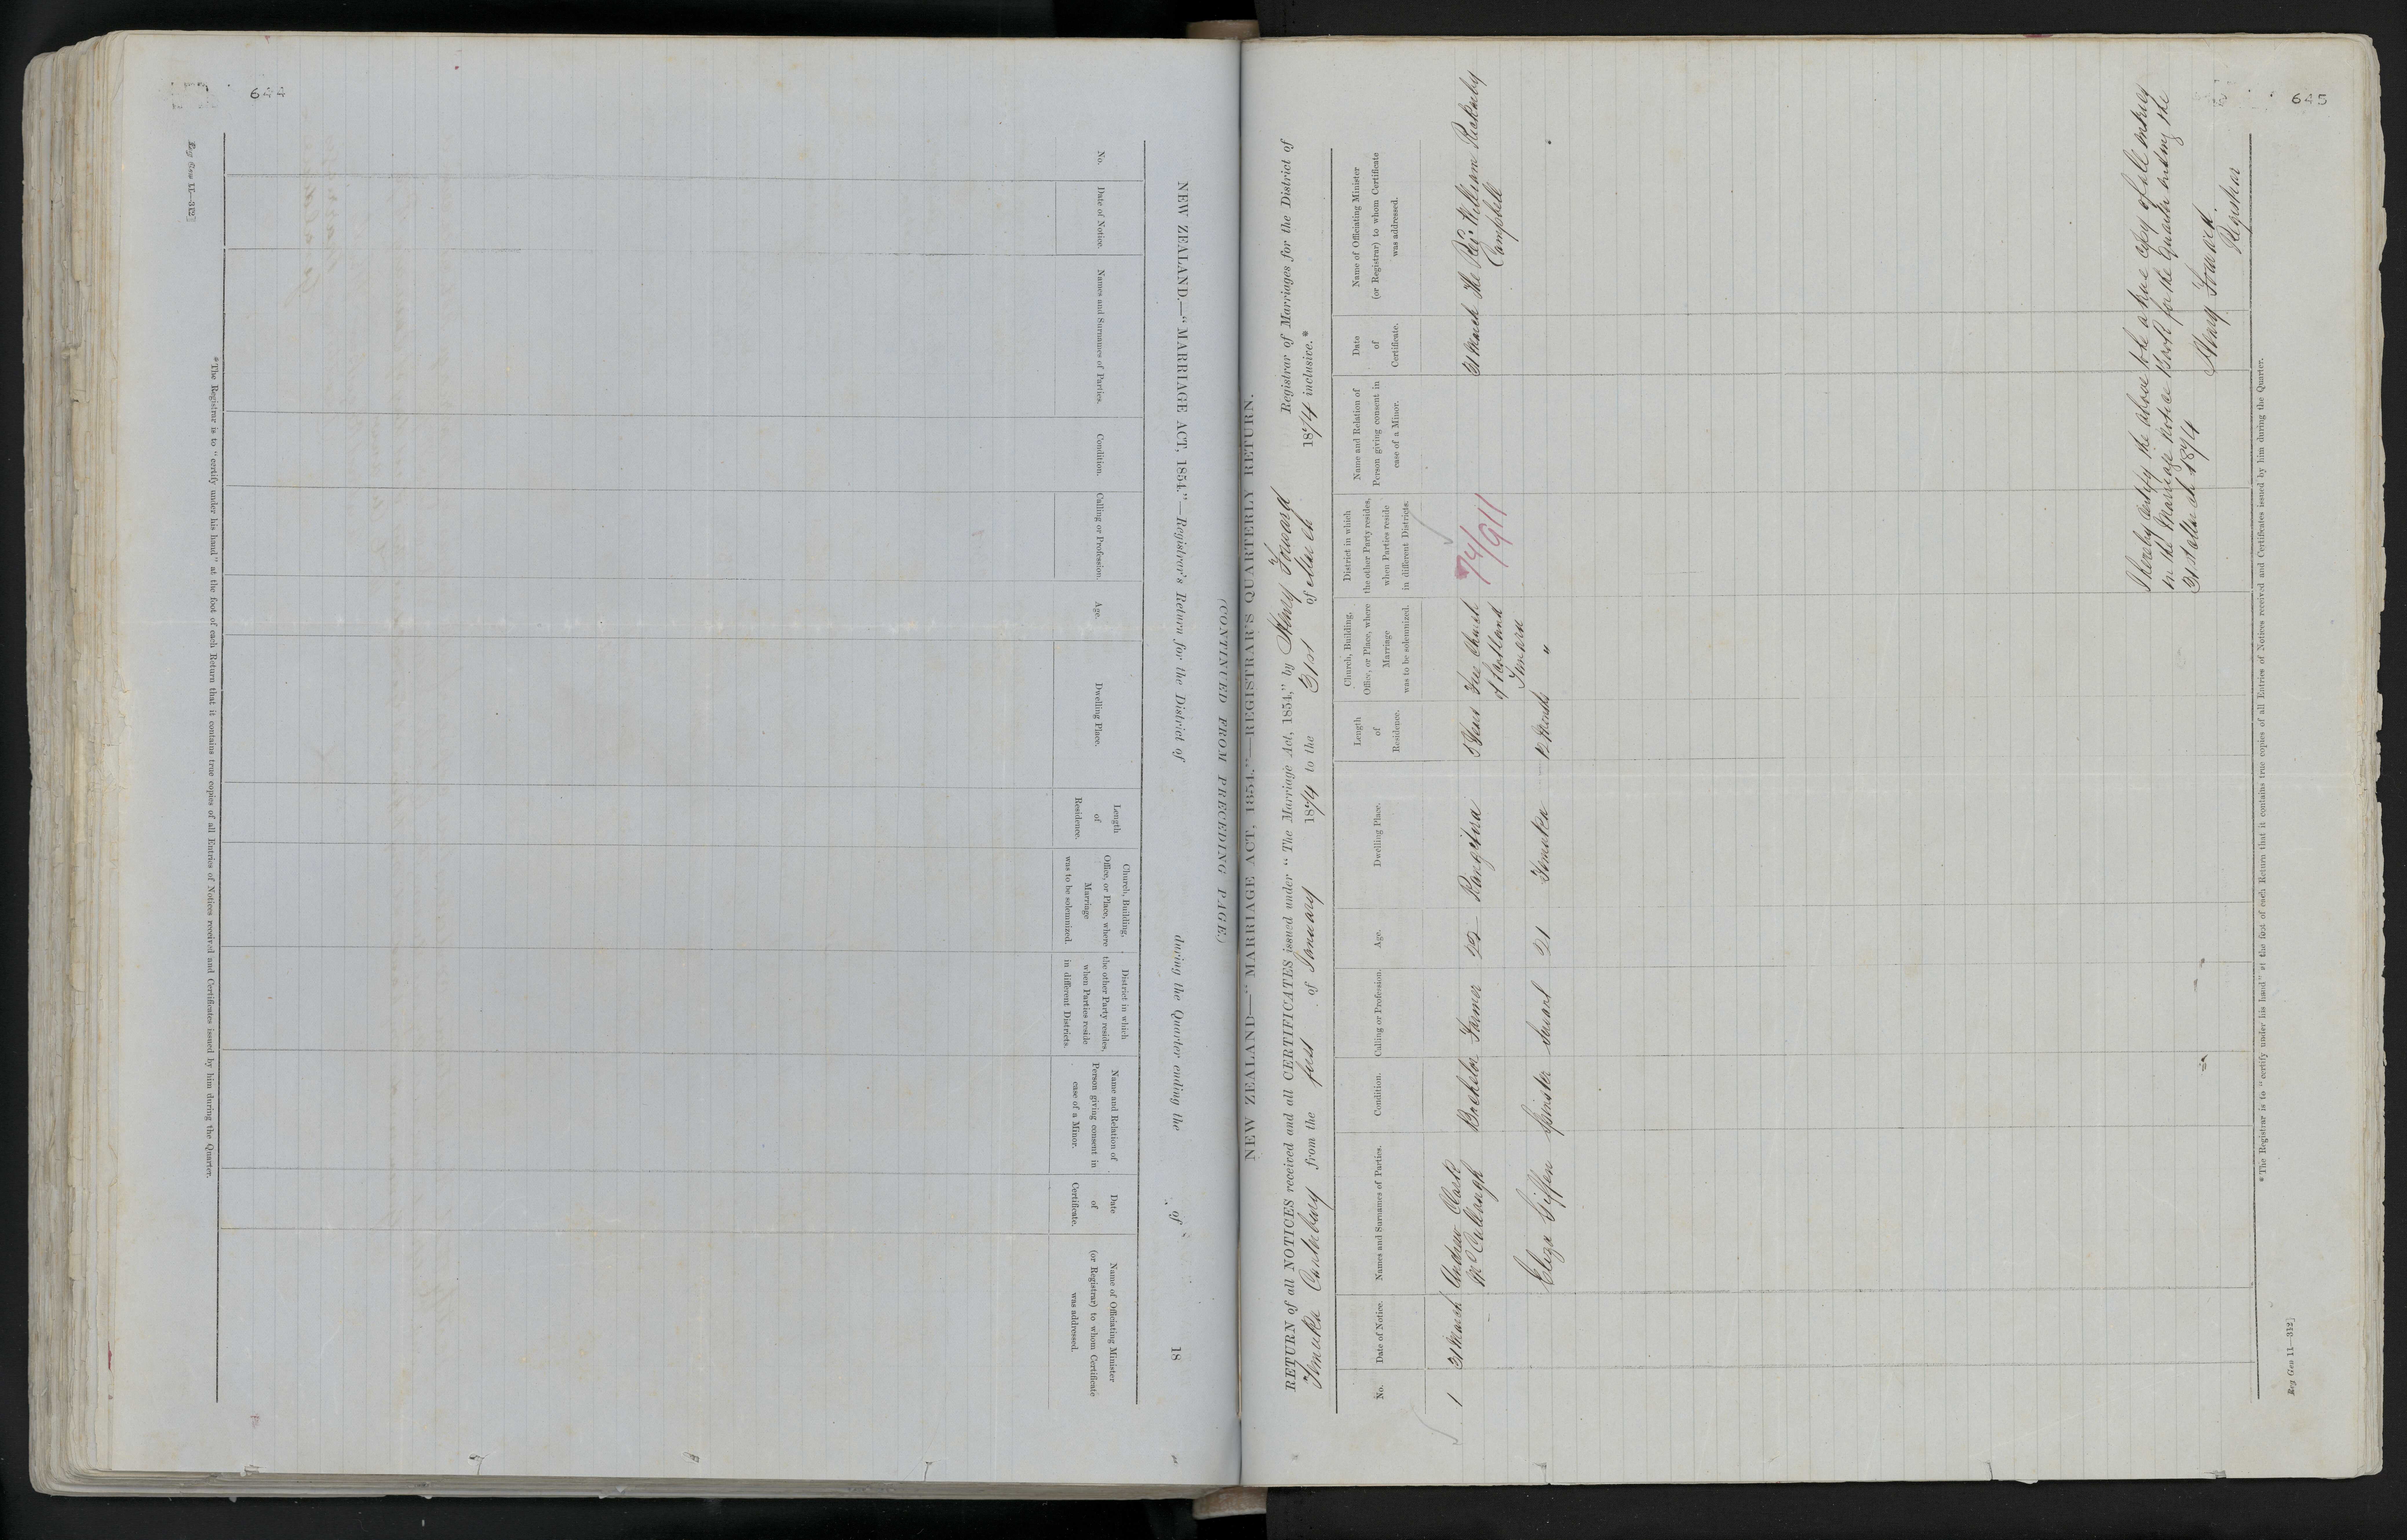 644
NEW ZEALAND.—"MARRIAGE ACT, 1854."—Registrar's Return for the District of during the Quarter ending the of 18
(CONTINUED FROM PRECEDING PAGE.)
No.
Date of Notice.
Names and Surnames of Parties.
Condition.
Calling or Profession.
Age.
Dwelling Place.
Length
of
Residence.
Church, Building,
Office, or Place, where
Marriage
was to be solemnized.
District in which
the other Party resides,
when Parties reside
in different Districts.
Name and Relation of
Person giving consent in
case of a Minor.
Date
of
Certificate.
Name of Officiating Minister
(or Registrar) to whom Certificate
was addressed.
* The Registrar is to "certify under his hand" at the foot of each Return that it contains true copies of all Entries of Notices received and Certificates issued by him during the Quarter.
Reg Gen 11—312]
645
NEW ZEALAND.—"MARRIAGE ACT, 1854."—REGISTRAR'S QUARTERLY RETURN.
RETURN of all NOTICES received and all CERTIFICATES issued under "The Marriage Act, 1854," by Henry Howard Registrar of Marriages for the District of
Temuka Canterbury from the first of January 1874 to the 31st of March 1874 inclusive.*
No.
Date of Notice.
Names and Surnames of Parties.
Condition.
Calling or Profession.
Age.
Dwelling Place.
Length
of
Residence.
Church, Building,
Office, or Place, where
Marriage
was to be solemnized.
District in which
the other Party resides,
when Parties reside
in different Districts.
Name and Relation of
Person giving consent in
case of a Minor.
Date
of
Certificate.
Name of Officiating Minister
(or Registrar) to whom Certificate
was addressed.
1 31 March Andrew Bachelor Farmer Rangitira 5 Years Free Church 74/911 31 March The Revd. William
McCullaugh of Scotland Campbell
Timaru
Eliza Giffen Spinster Servant 21 Temuka 12 Months "
I hereby certify the above to be a true copy of all entries
in the Marriage Notice Book for the Quarter ending the
31st March 1874
Henry Howard
Registrar
* The Registrar is to "certify under his hand" at the foot of each Return that it contains true copies of all Entries of Notices received and Certificates issued by him during the Quarter.
Reg Gen 11—312]